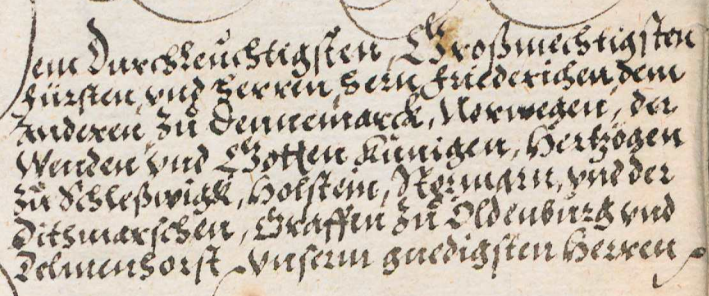 Dem Durchleuchtigsten, Großmechtigsten
Fürsten, vnd Herren, Hern Friederichen dem
Anderen Zu Dennemarck, Norwegen, der
Wenden vnd Gotten Künigen, Hertzogen
Zu Schleßwigk, Holstein, Stormarn, vnd der
Dithmarschen, Graffen Zu Oldenburg vnd
Delmenhorst vnserm gnedigsten Herren